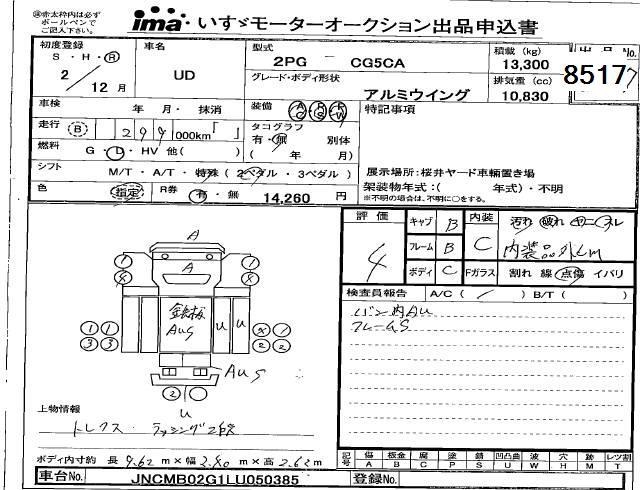 ㊟赤太枠内は必ず
ボールペンで
ご記入下さい。
ima いすゞモーターオークション出品申込書
初度登録
S・H・R
2/12月
車名
UD
型式
2PG - CG5CA
グレード・ボディ形状
アルミウイング
積載 (kg)
13,300
排気量 (cc)
10,830
No.
8517
車検 年 月・抹消
装備 AC PS PW
特記事項
走行 B 299 000km
タコグラフ
有・無 別体
( 年 月)
燃料 G・L・HV 他( )
シフト M/T・A/T・特殊 (2ペダル・3ペダル)
展示場所:桜井ヤード車輛置き場
架装物年式:( 年式)・不明
※不明の場合は、不明に○をする。
色 指定 R券 有・無 14,260 円
評価
4
キャブ B
フレーム B
ボディ C
内装 C
汚れ 破れ ヤニ スレ
内装品外しm
Fガラス 割れ 線 点傷 イバリ
検査員報告 A/C ( / ) B/T ( )
バン内AU
フレームS
A
A
鉄板
AUS
U U
AUS
U
1 1
3 3
2 2
2
上物情報
トレクス・ラッシング2段
ボディ内寸約 長 9.62 m×幅 2.40 m×高 2.62 m
記号 傷 板金 腐 塗 錆 凹凸曲 波 穴 跡 レツ割
A B C P S U W H M T
車台No. JNCMB02G1LU050385 登録No.